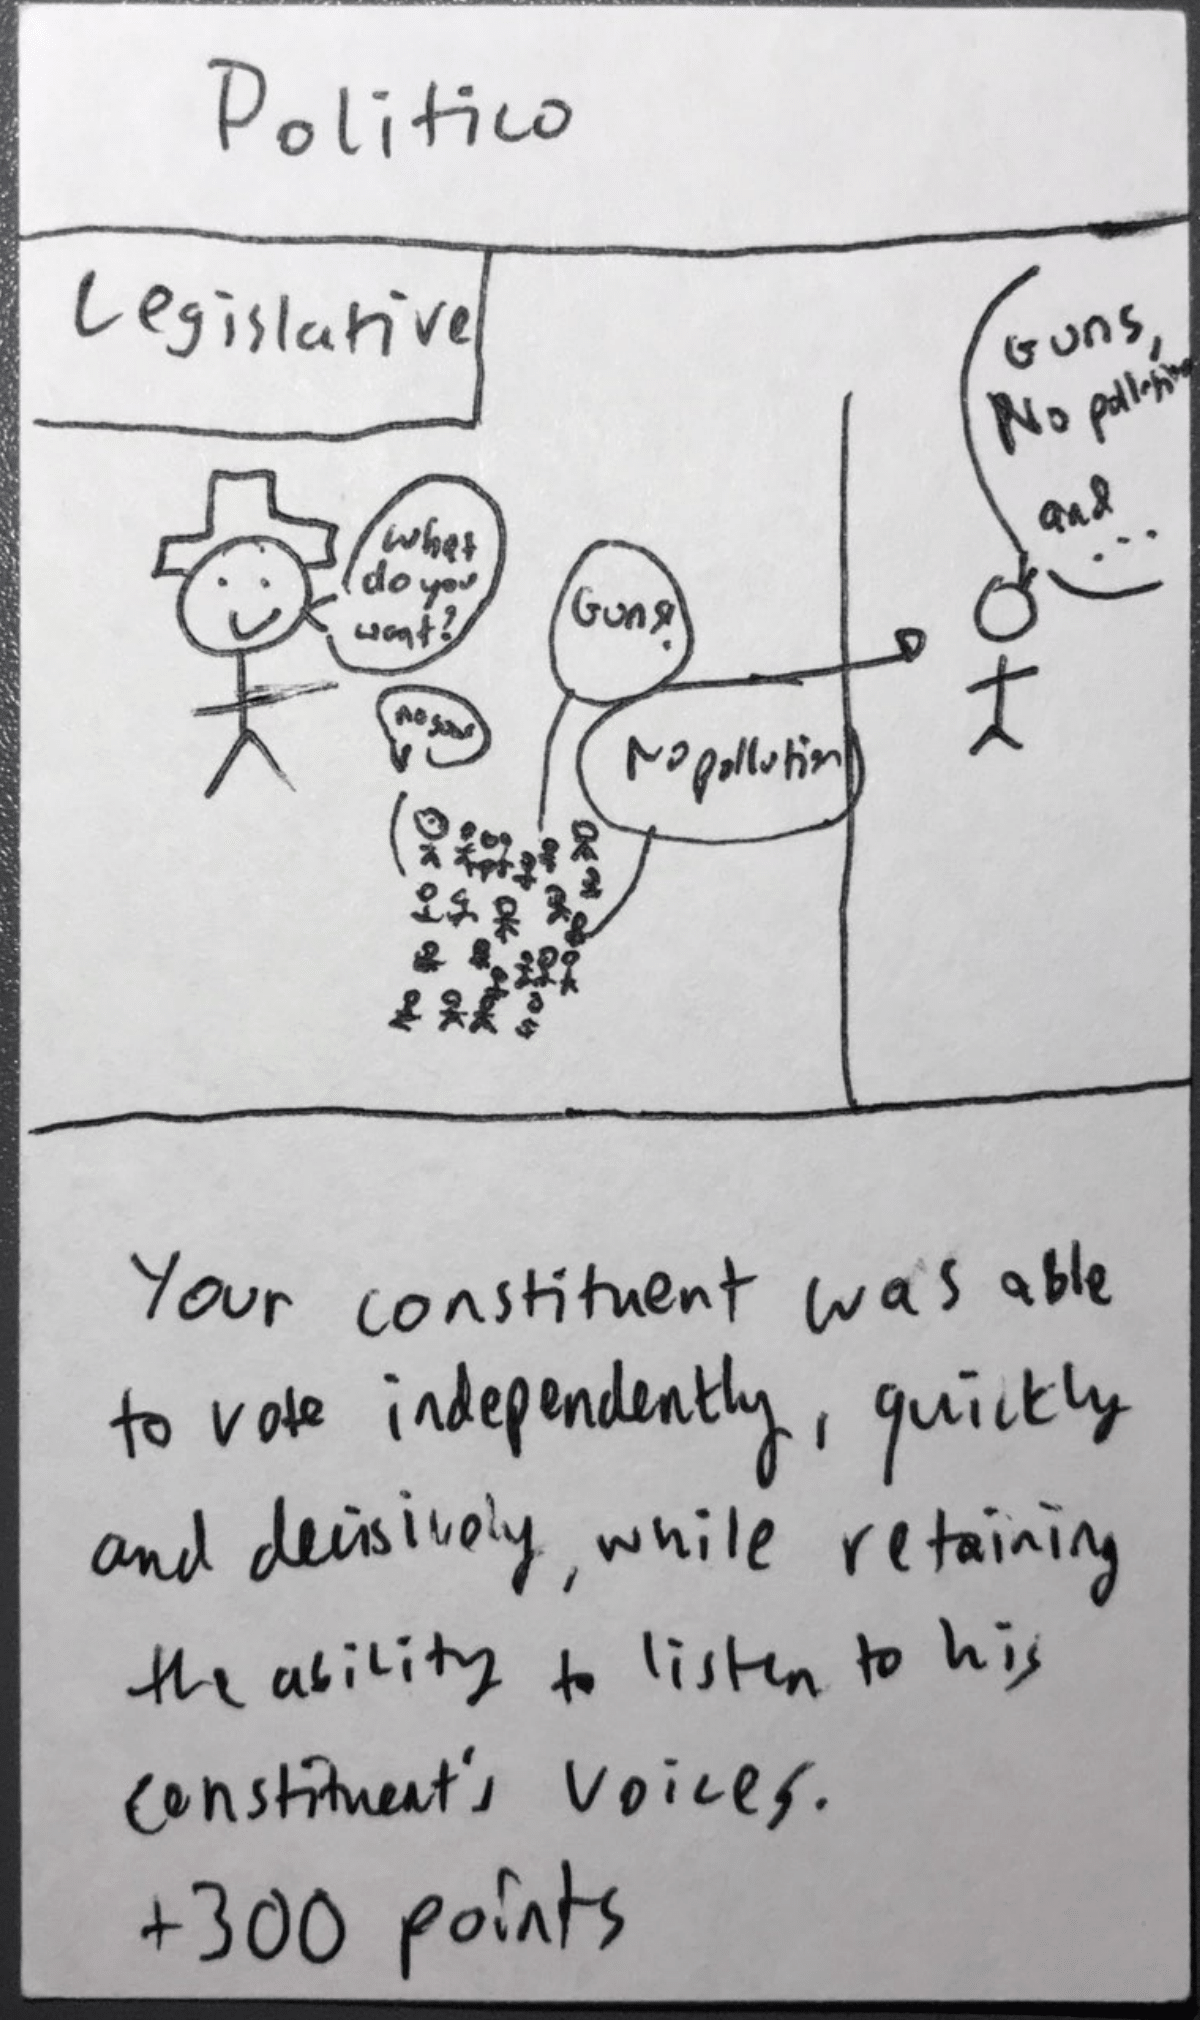 Politico
Legislative
Guns,
No pollution
and
...
What
do you
want?
Guns.
no guns
No pollution
Your constituent was able
to vote independently, quickly
and decisively, while retaining
the ability to listen to his
constituent's voices.
+300 points